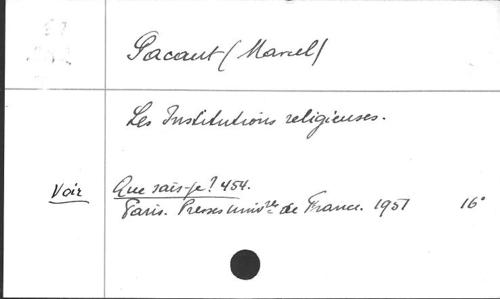 Pacaut (Marcel)
Les Institutions religieuses.
Voir Que sais-je? 454.
Paris. Presses univres de France. 1951 16°